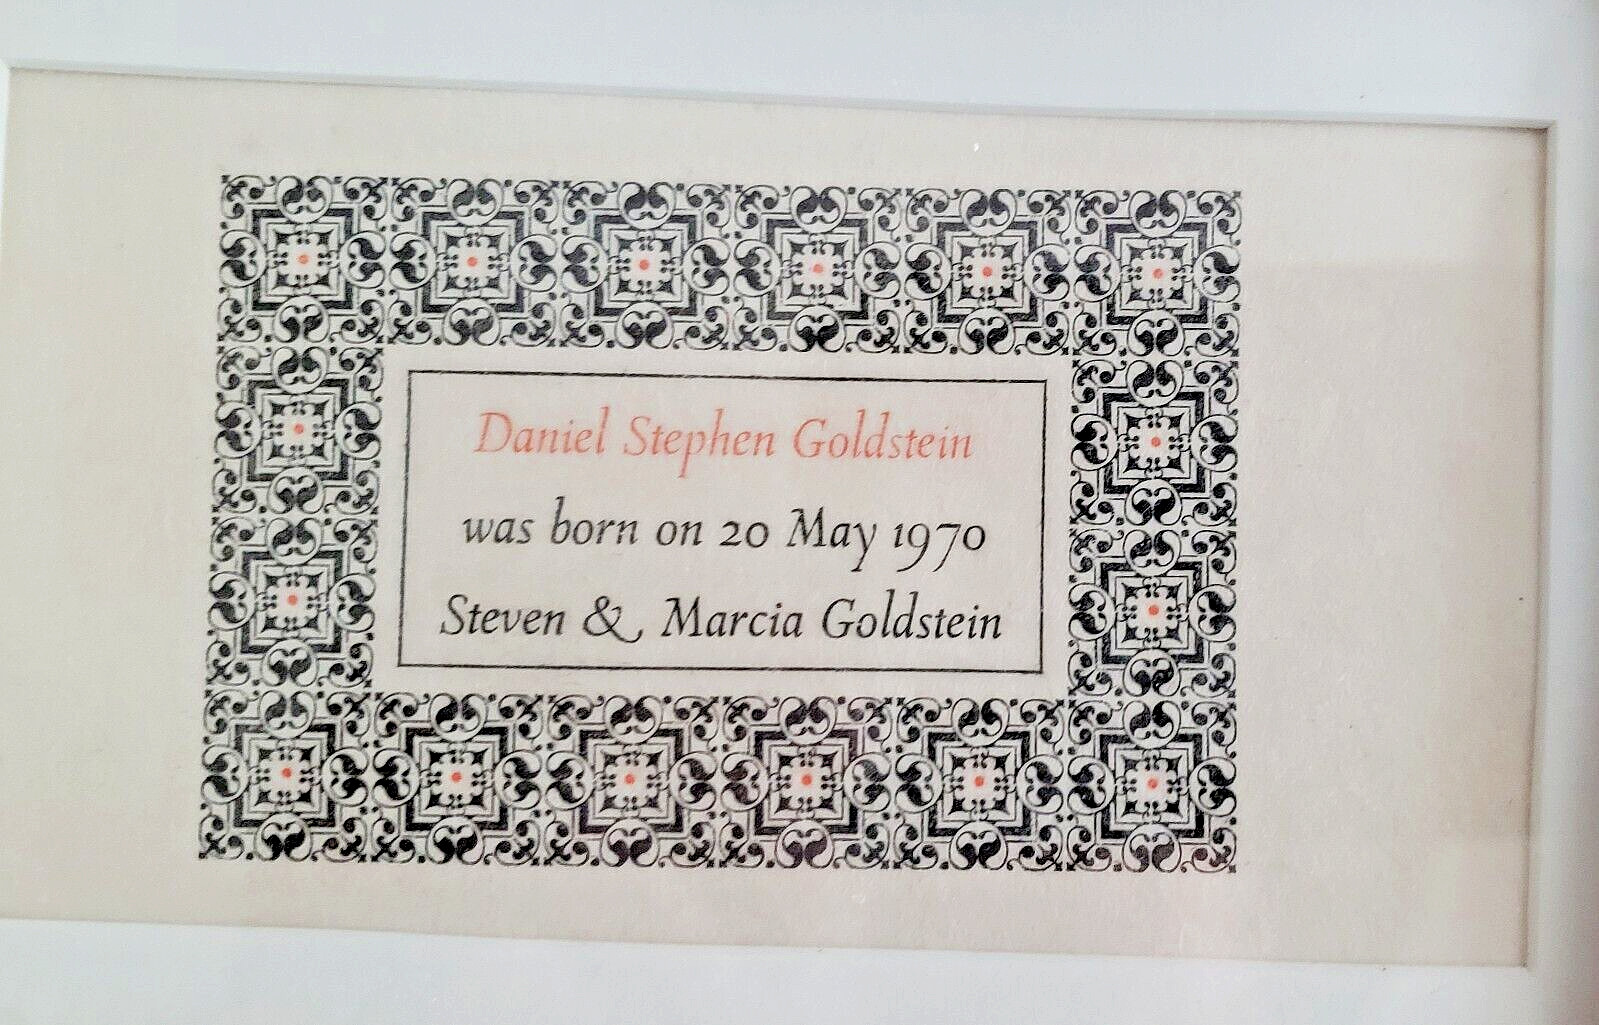 Daniel Stephen Goldstein
was born on 20 May 1970
Steven & Marcia Goldstein